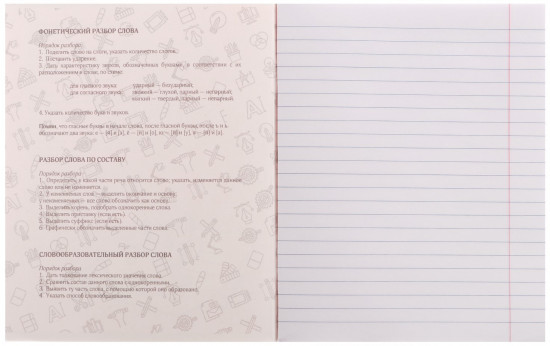 ФОНЕТИЧЕСКИЙ РАЗБОР СЛОВА
Порядок разбора
1. Разделить слово на слоги, указать количество слогов.
2. Поставить ударение.
3. Дать характеристику звуков, обозначенных буквами, в соответствии с их
расположением в слове, по схеме:
для гласного звука: ударный – безударный;
для согласного звука: звонкий – глухой, парный – непарный;
мягкий – твердый, парный – непарный.
4. Указать количество букв и звуков.
что гласные буквы в начале слова, после гласной буквы, после ъ и ь
обозначают два звука:
РАЗБОР СЛОВА ПО СОСТАВУ
Порядок разбора
1. Определить, к какой части речи относится слово, указать, изменяется данное
слово или не изменяется.
2. У изменяемых слов – выделить окончание и основу,
у неизменяемых – все слово обозначить как основу.
3. Выделить корень, подобрать однокоренные слова.
4. Выделить приставку (если есть).
5. Выделить суффикс (если есть).
6. Графически обозначить выделенные части слова.
СЛОВООБРАЗОВАТЕЛЬНЫЙ РАЗБОР СЛОВА
Порядок разбора
1. Дать толкование лексического значения слова.
2. Сравнить состав данного слова с однокоренным.
3. Выявить ту часть слова, с помощью которой оно образовано.
4. Указать способ словообразования.